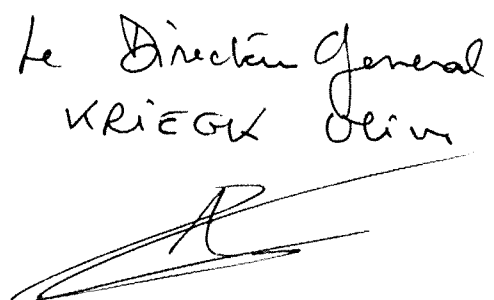 Le Directeur General
KRiEGK Olivier